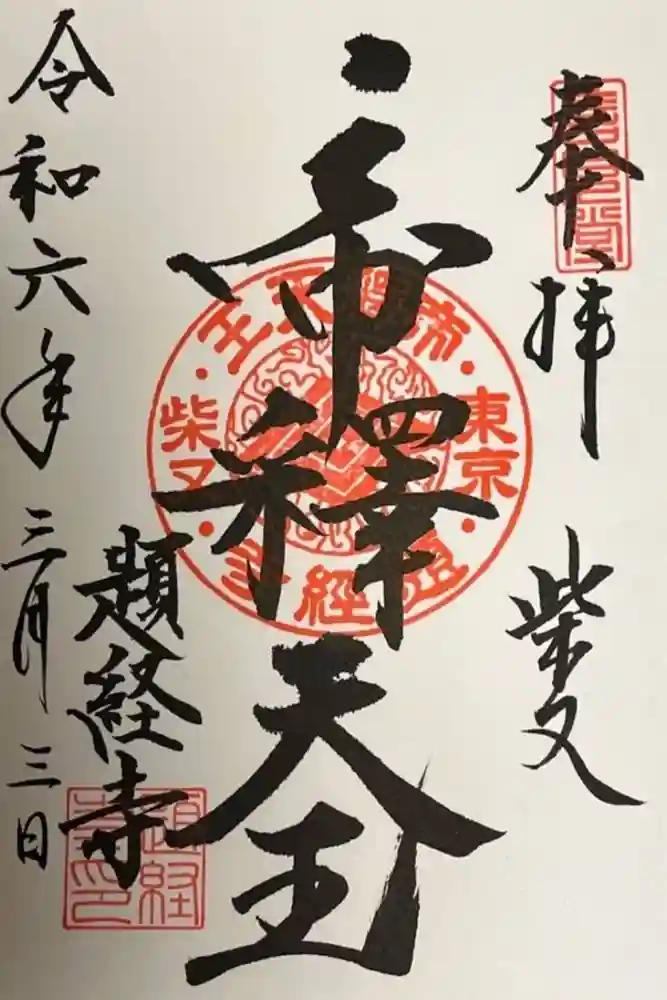 奉拝
柴又
帝釋天王
東京
柴又
題経寺
令和六年三月三日